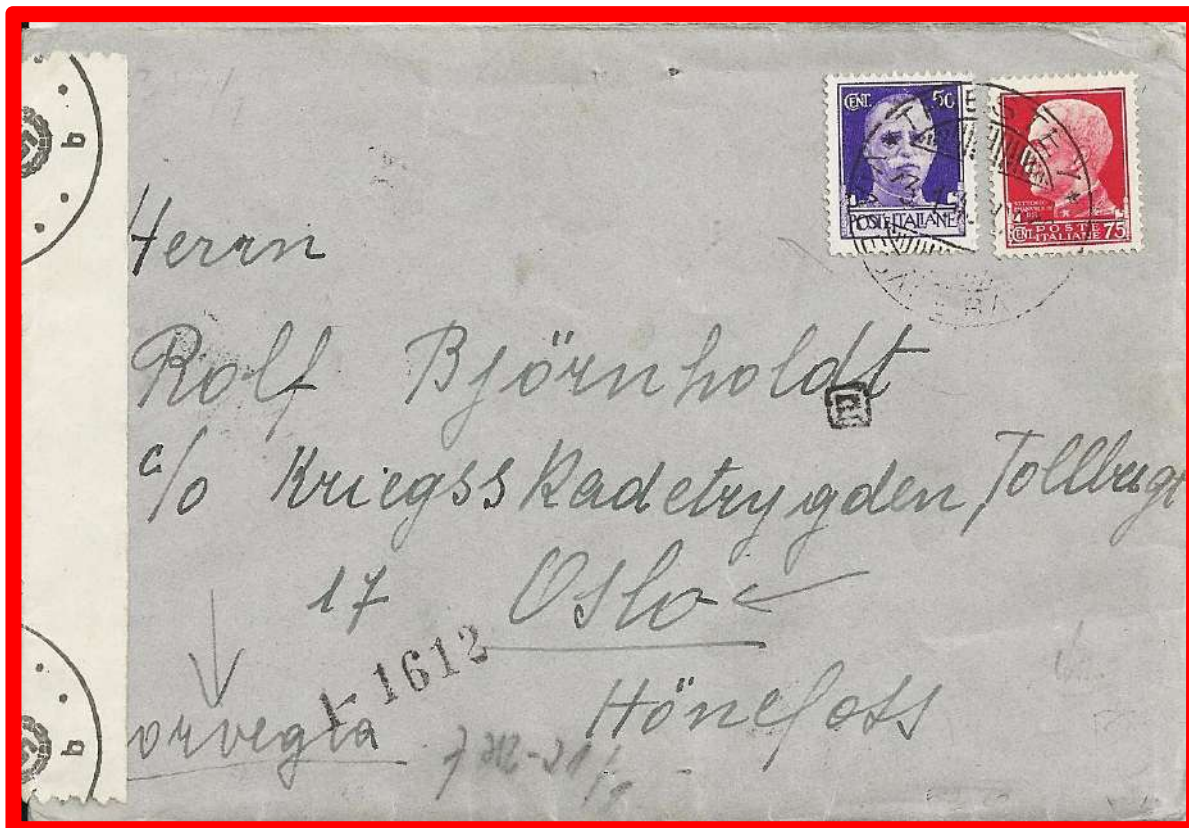 CENT. 50
POSTE ITALIANE
VITTORIO
EMANUELE III
CENT. POSTE ITALIANE 75
TRIESTE
b
Herrn
Rolf Björnholdt
E
c/o Kriegsskadetrygden, Tollbugt
17 Oslo
1-1612
Hönefoss
orvegia
b